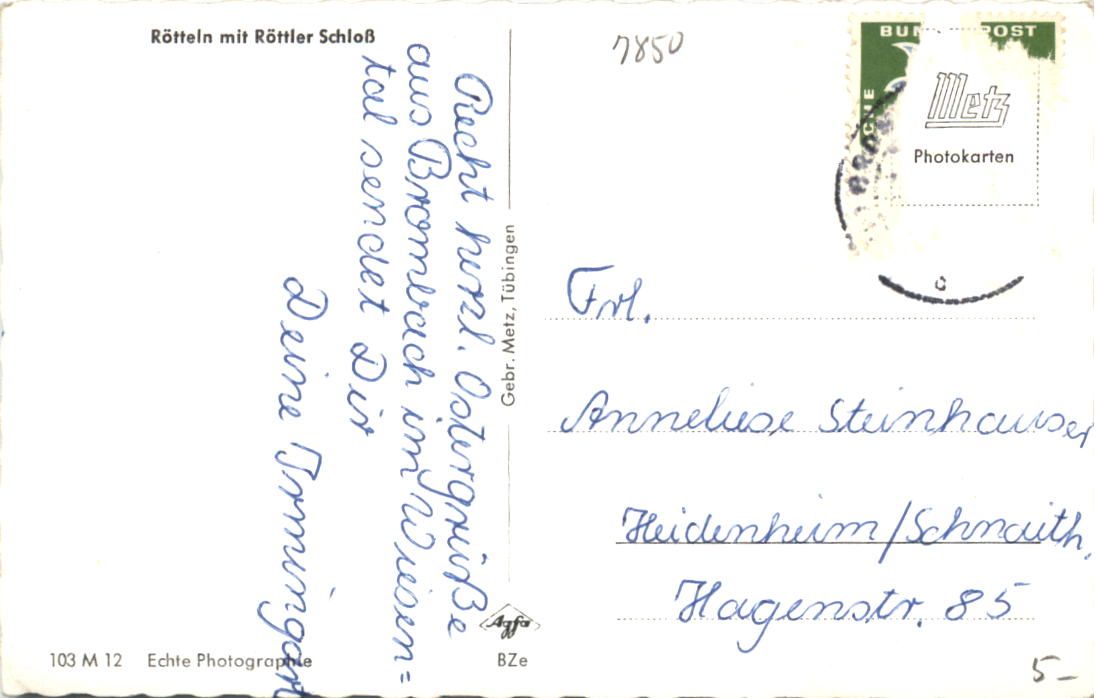 Rötteln mit Röttler Schloß
Recht herzl. Ostergrüße
aus Brombach im Wiesen=
tal sendet Dir
Deine Irmingart
103 M 12 Echte Photographie
Gebr. Metz, Tübingen
Agfa
BZe
7850
POST
Metz
Photokarten
c
Frl.
Anneliese Steinhauser
Heidenheim/Schnaith.
Hagenstr. 85
5-